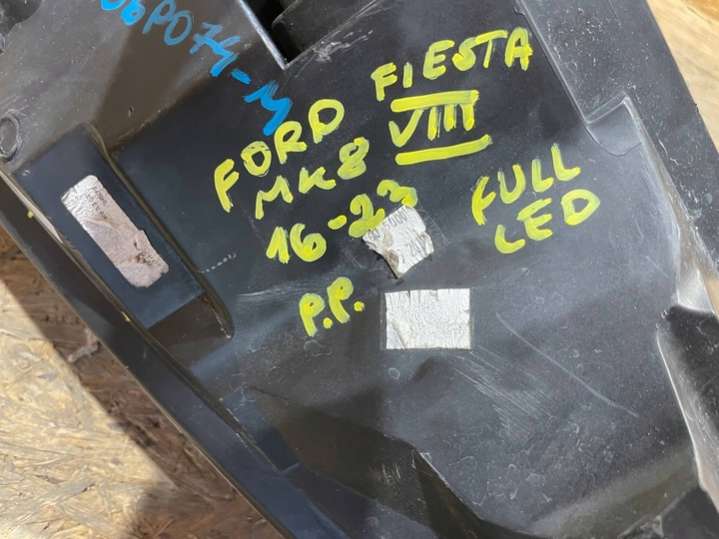 06P074-M
FORD FIESTA
MK8 VIII
16-23 FULL
LED
P.P.